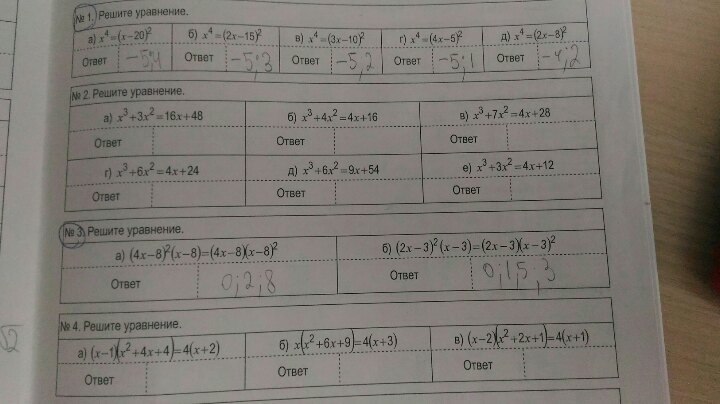 № 1. Решите уравнение.
а) x⁴=(x−20)² б) x⁴=(2x−15)² в) x⁴=(3x−10)² г) x⁴=(4x−5)² д) x⁴=(2x−8)²
Ответ −5;4 Ответ −5;3 Ответ −5;2 Ответ −5;1 Ответ −4;2
№ 2. Решите уравнение.
а) x³+3x²=16x+48 б) x³+4x²=4x+16 в) x³+7x²=4x+28
Ответ Ответ Ответ
г) x³+6x²=4x+24 д) x³+6x²=9x+54 е) x³+3x²=4x+12
Ответ Ответ Ответ
№ 3. Решите уравнение.
а) (4x−8)²(x−8)=(4x−8)(x−8)² б) (2x−3)²(x−3)=(2x−3)(x−3)²
Ответ 0;2;8 Ответ 0;1,5;3
№ 4. Решите уравнение.
а) (x−1)(x²+4x+4)=4(x+2) б) x(x²+6x+9)=4(x+3) в) (x−2)(x²+2x+1)=4(x+1)
Ответ Ответ Ответ
√2